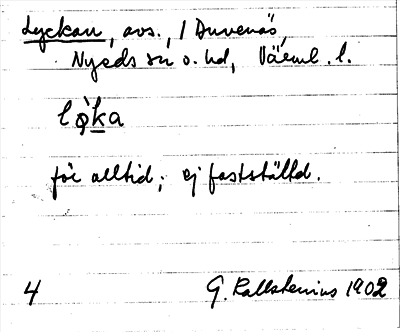 Lyckan, avs., / Duvenäs,
Nyeds sn o. hd, Värml. l.
lø̀ka
för alltid; ej fastställd.
4 G. Kallstenius 1902